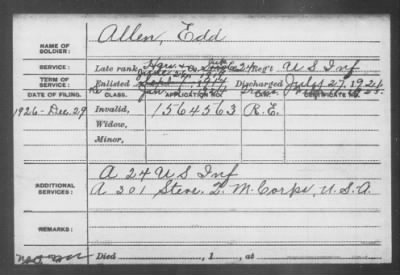 Allen, Edd
NAME OF SOLDIER:
SERVICE: Late rank, Co. 24 Reg't U S Inf
TERM OF SERVICE: Enlisted Discharged July 27, 1926
DATE OF FILING. CLASS. APPLICATION NO. CERTIFICATE NO.
1926-Dec. 29 Invalid, 1564563 R.E.
Widow,
Minor,
A 24 U S Inf
ADDITIONAL SERVICES: A 201 Steve. Q. M. Corps, U.S.A.
REMARKS:
Died , 1 , at